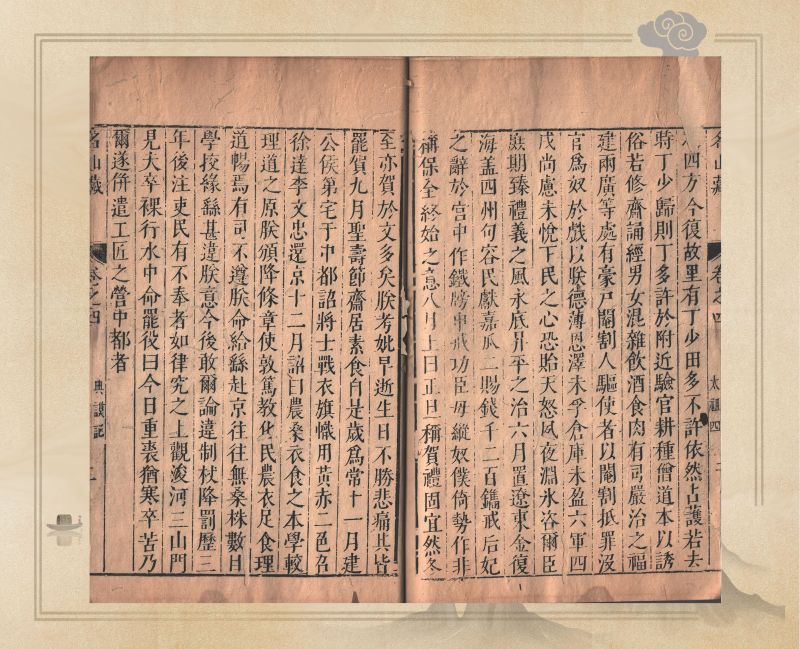 名山藏 卷之四 太祖四 二
四方今復故里有丁少田多不許依然占護若去
時丁少歸則丁多許於附近驗官耕種僧道本以誘
俗若修齋誦經男女混雜飲酒食肉有司嚴治之福
建兩廣等處有豪戶閹割人驅使者以閹割抵罪沒
官為奴於戲以朕德薄恩澤未孚倉庫未盈六軍四
戍尚慮未悅下民之心恐貽天怒夙夜淵氷咨爾臣
庶期臻禮義之風永底昇平之治六月置遼東金復
海蓋四州句容民獻嘉瓜二賜錢千二百鐫戒后妃
之辭於宮中作鐵牓申戒功臣毋縱奴僕倚勢作非
稱保全終始之意八月上曰正旦稱賀禮固宜然冬
至亦賀於文多矣朕考妣早逝生日不勝悲痛其皆
罷賀九月聖壽節齋居素食自是歲為常十一月建
公侯第宅于中都詔將士戰衣旗幟用黃赤二色召
徐達李文忠還京十二月詔曰農桑衣食之本學較
理道之原朕頒降條章使敦篤教化民農衣足食理
道暢焉有司不遵朕命給繇赴京往往無桑株數目
學挍緣繇甚違朕意今後敢爾論違制杖降罰歷三
年後注吏民有不奉者如律究之上觀浚河三山門
見大卒裸行水中命罷役曰今日重裘猶寒卒苦乃
爾遂併遣工匠之營中都者
名山藏 卷之四 典謨記 二